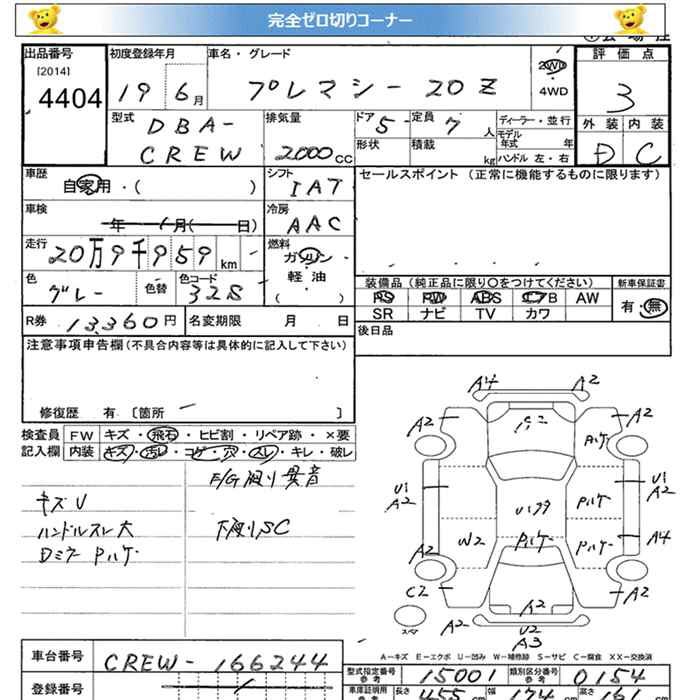 完全ゼロ切りコーナー
出品番号 初度登録年月 車名・グレード 評価点
[2014] 4404 19 6月 プレマシー 20Z 2WD 4WD 3
型式 DBA- CREW 排気量 2000cc ドア 5 定員 7人 ディーラー・並行 外装 内装
形状 積載 kg モデル年式 年 ハンドル 左・右 D C
車歴 自家用・( ) シフト IAT セールスポイント (正常に機能するものに限ります)
車検 年 月( 日) 冷房 AAC
走行 20万9千959km 燃料 ガソリン 軽油 ( )
色 グレー 色替 色コード 32S 装備品 (純正品に限り○をつけてください) 新車保証書
PS PW ABS エアB AW 有・無
SR ナビ TV カワ
R券 13,360円 名変期限 月 日 後日品
注意事項申告欄 (不具合内容等は具体的に記入して下さい)
修復歴 有 [箇所 ]
検査員 FW キズ・飛石・ヒビ割・リペア跡・×要
記入欄 内装 キズ・汚レ・コゲ・穴・スレ・キレ・破レ
F/G廻り異音
キズU
ハンドルスレ大 下廻りSC
Dミラー Pハゲ
A4 A2
A2 A2
Pハゲ
U1 A2 U1 A2
Pハゲ
W2 Pハゲ Pハゲ A4
A2
C2 A2
スペア A2 U2 A2
A3
A-キズ E-エクボ U-凹み W-補修跡 S-サビ C-腐食 XX-交換済
車台番号 CREW-166244 型式指定番号 参考 15001 類別区分番号 参考 0154
登録番号 車庫証明用 参考 長さ 455cm 幅 174cm 高さ 161cm